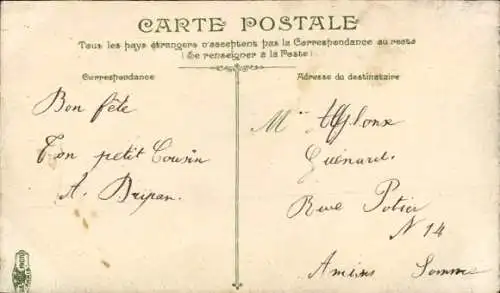 CARTE POSTALE
Tous les pays étrangers n'acceptent pas la Correspondance au recto
(Se renseigner à la Poste)
Correspondance
Adresse du destinataire
Bon fête
Ton petit Cousin
A.
M Alphonse
Guénard.
Rue Potier
N 14
Amiens Somme